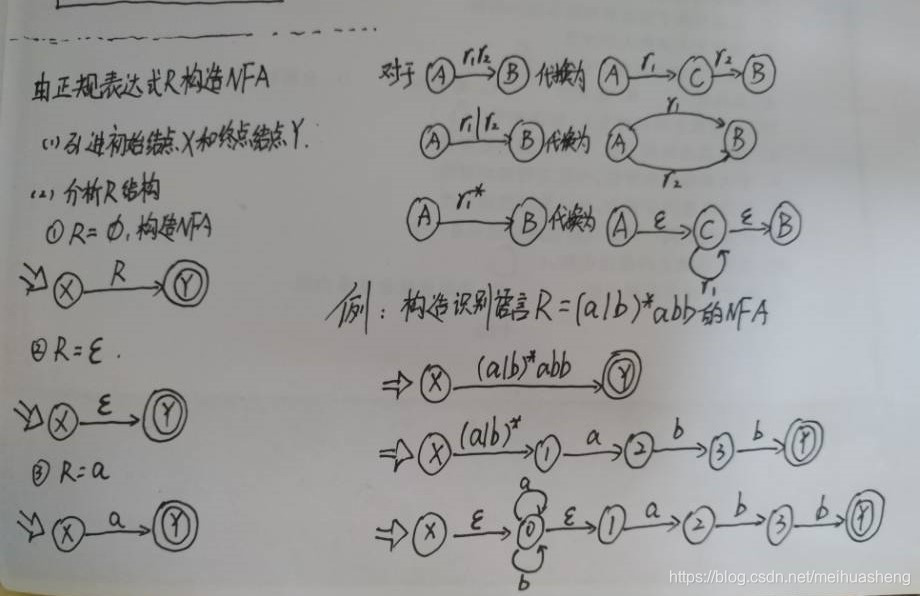 由正规表达式R构造NFA
(1) 引进初始结点X和终点结点Y.
(2) 分析R结构
① R=∅, 构造NFA
X R Y
② R=ε.
X ε Y
③ R=a
X a Y
对于 A r₁r₂ B 代换为 A r₁ C r₂ B
A r₁|r₂ B 代换为 A r₁ r₂ B
A r₁* B 代换为 A ε C ε B r₁
例: 构造识别语言R=(a|b)*abb的NFA
⇒ X (a|b)*abb Y
⇒ X (a|b)* 1 a 2 b 3 b Y
⇒ X ε 0 a b ε 1 a 2 b 3 b Y
https://blog.csdn.net/meihuasheng